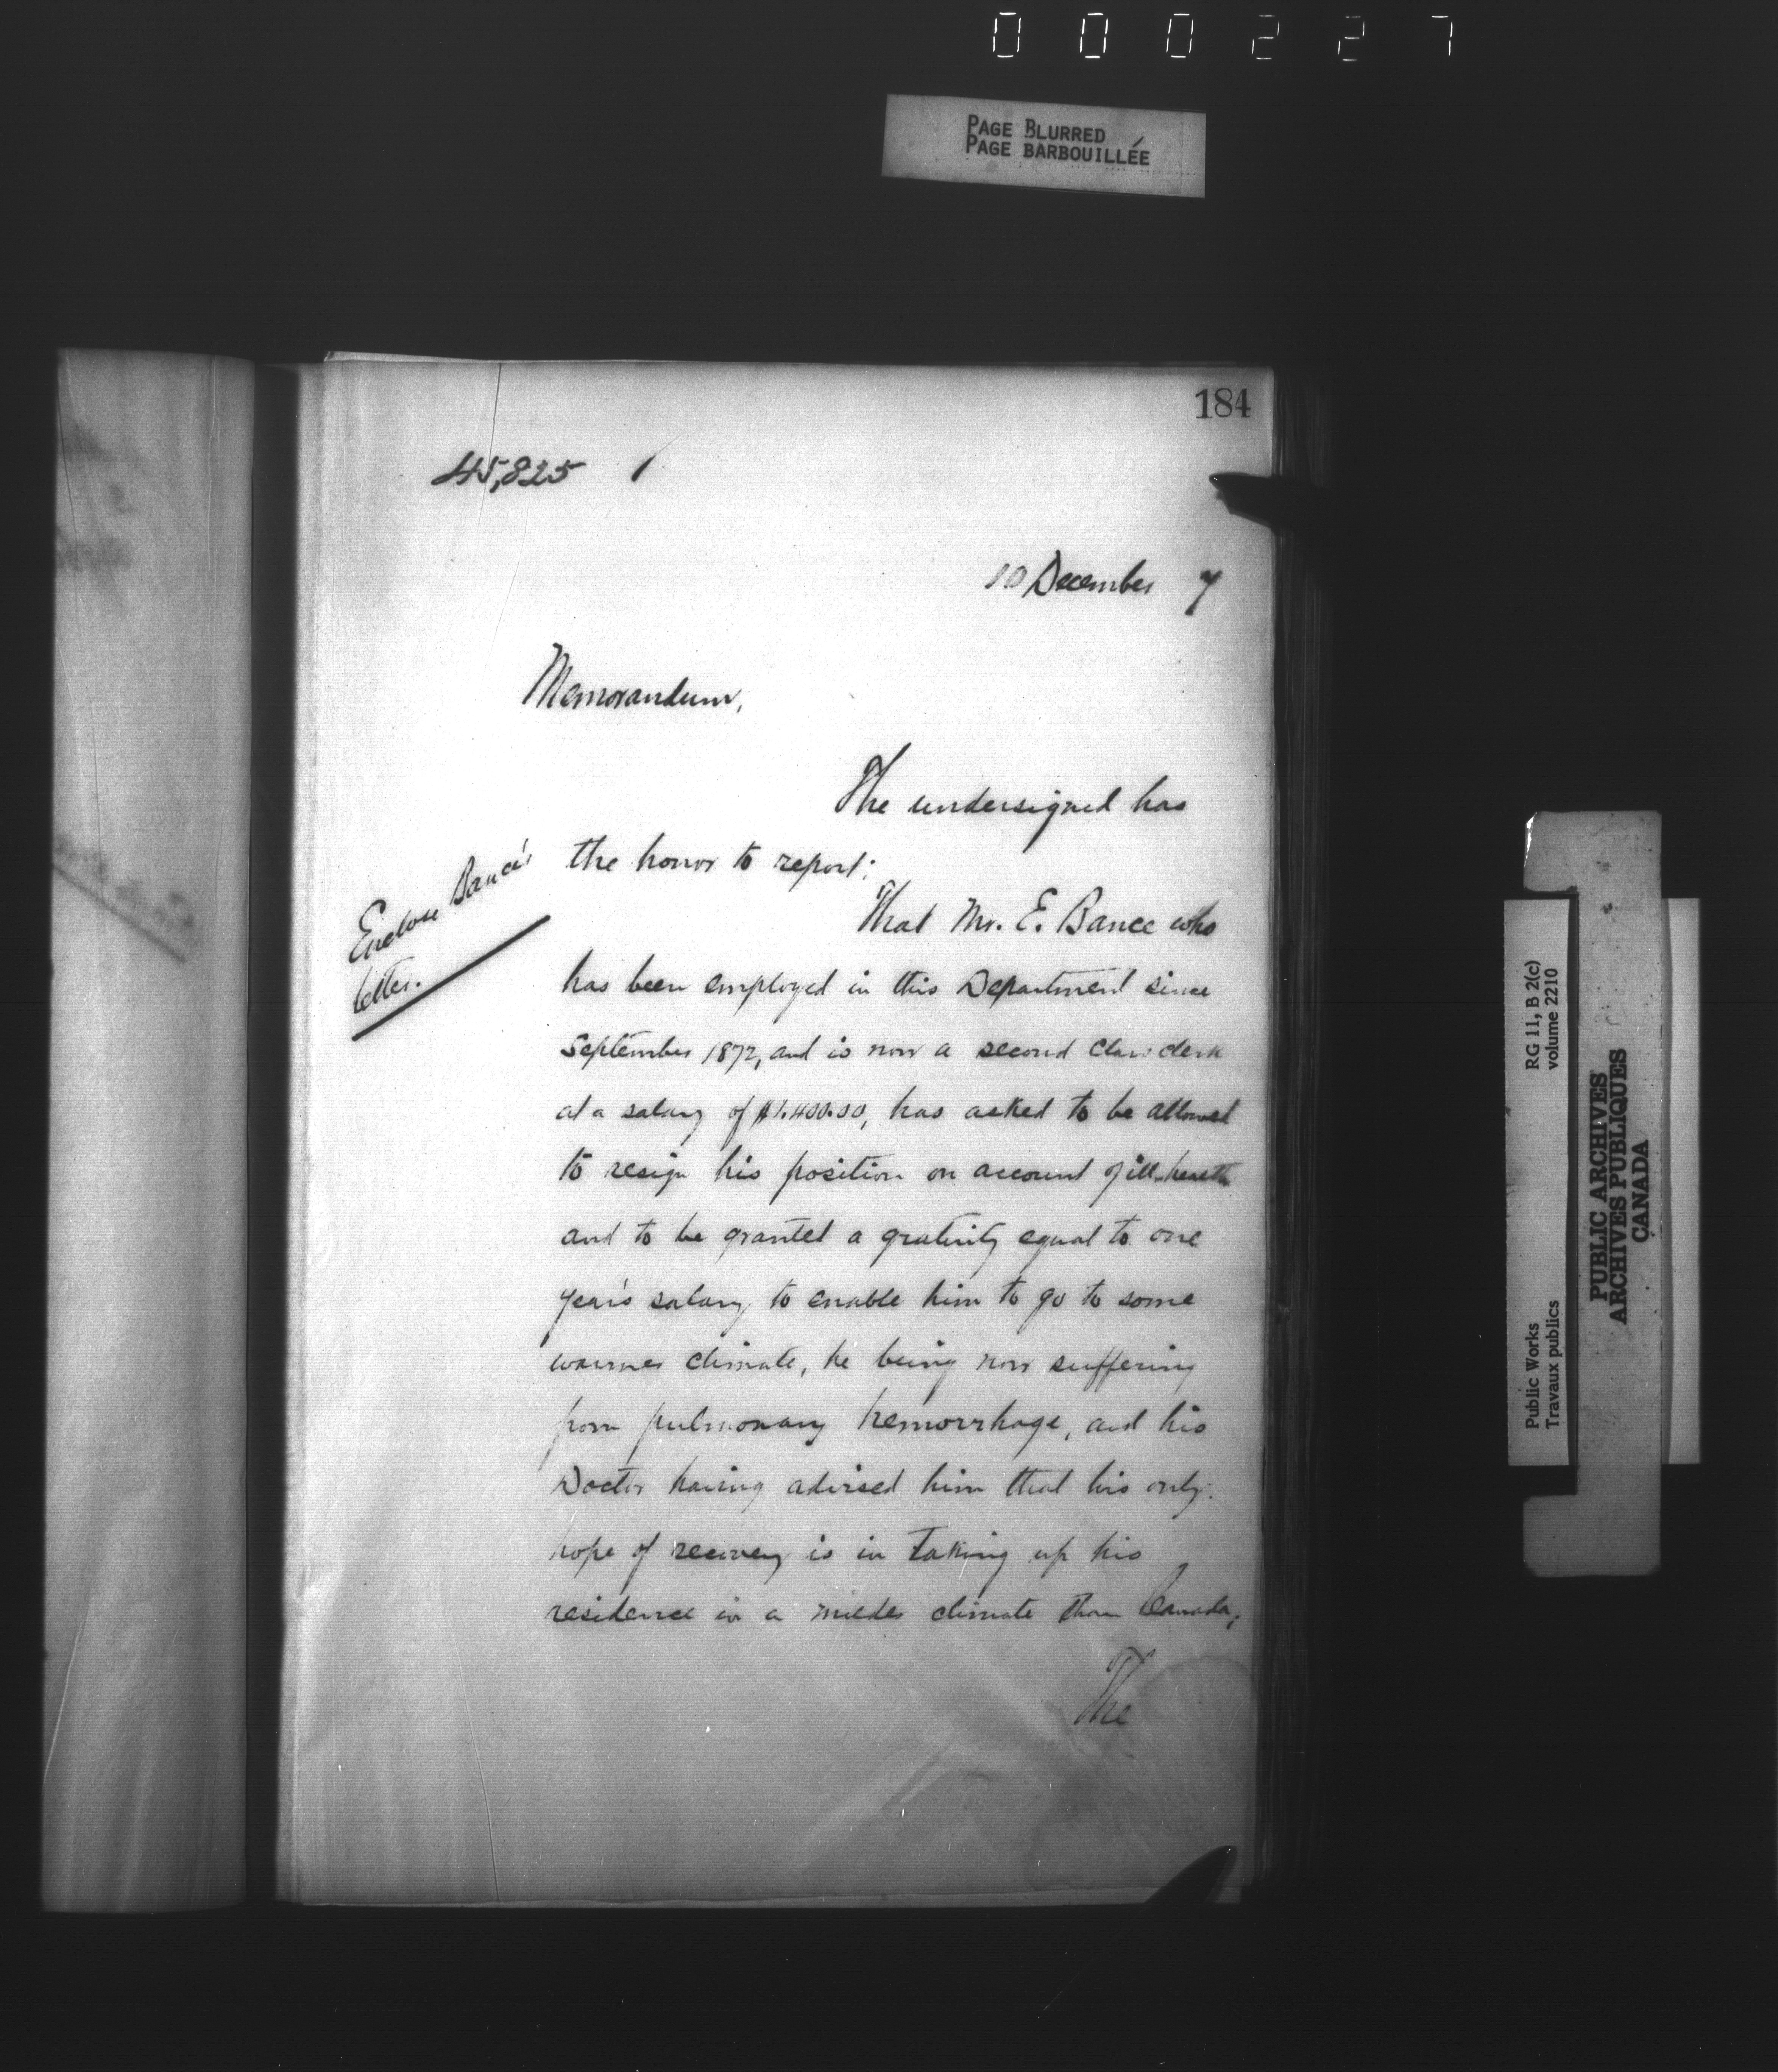 000227
PAGE BLURRED
PAGE BARBOUILLÉE
184
45,825 1
10 December 7
Memorandum,
The undersigned has
the honor to report;
Enclose Bance's
letter.
That Mr. E. Bance who
has been employed in this Department since
September 1872, and is now a second class clerk
at a salary of $1.400.00, has asked to be allowed
to resign his position on account of ill-health
and to be granted a gratuity equal to one
year's salary, to enable him to go to some
warmer climate, he being now suffering
from pulmonary hemorrhage, and his
Doctor having advised him that his only
hope of recovery is in taking up his
residence in a milder climate than Canada;
The
Public Works
Travaux publics
RG 11, B 2(c)
volume 2210
PUBLIC ARCHIVES
ARCHIVES PUBLIQUES
CANADA